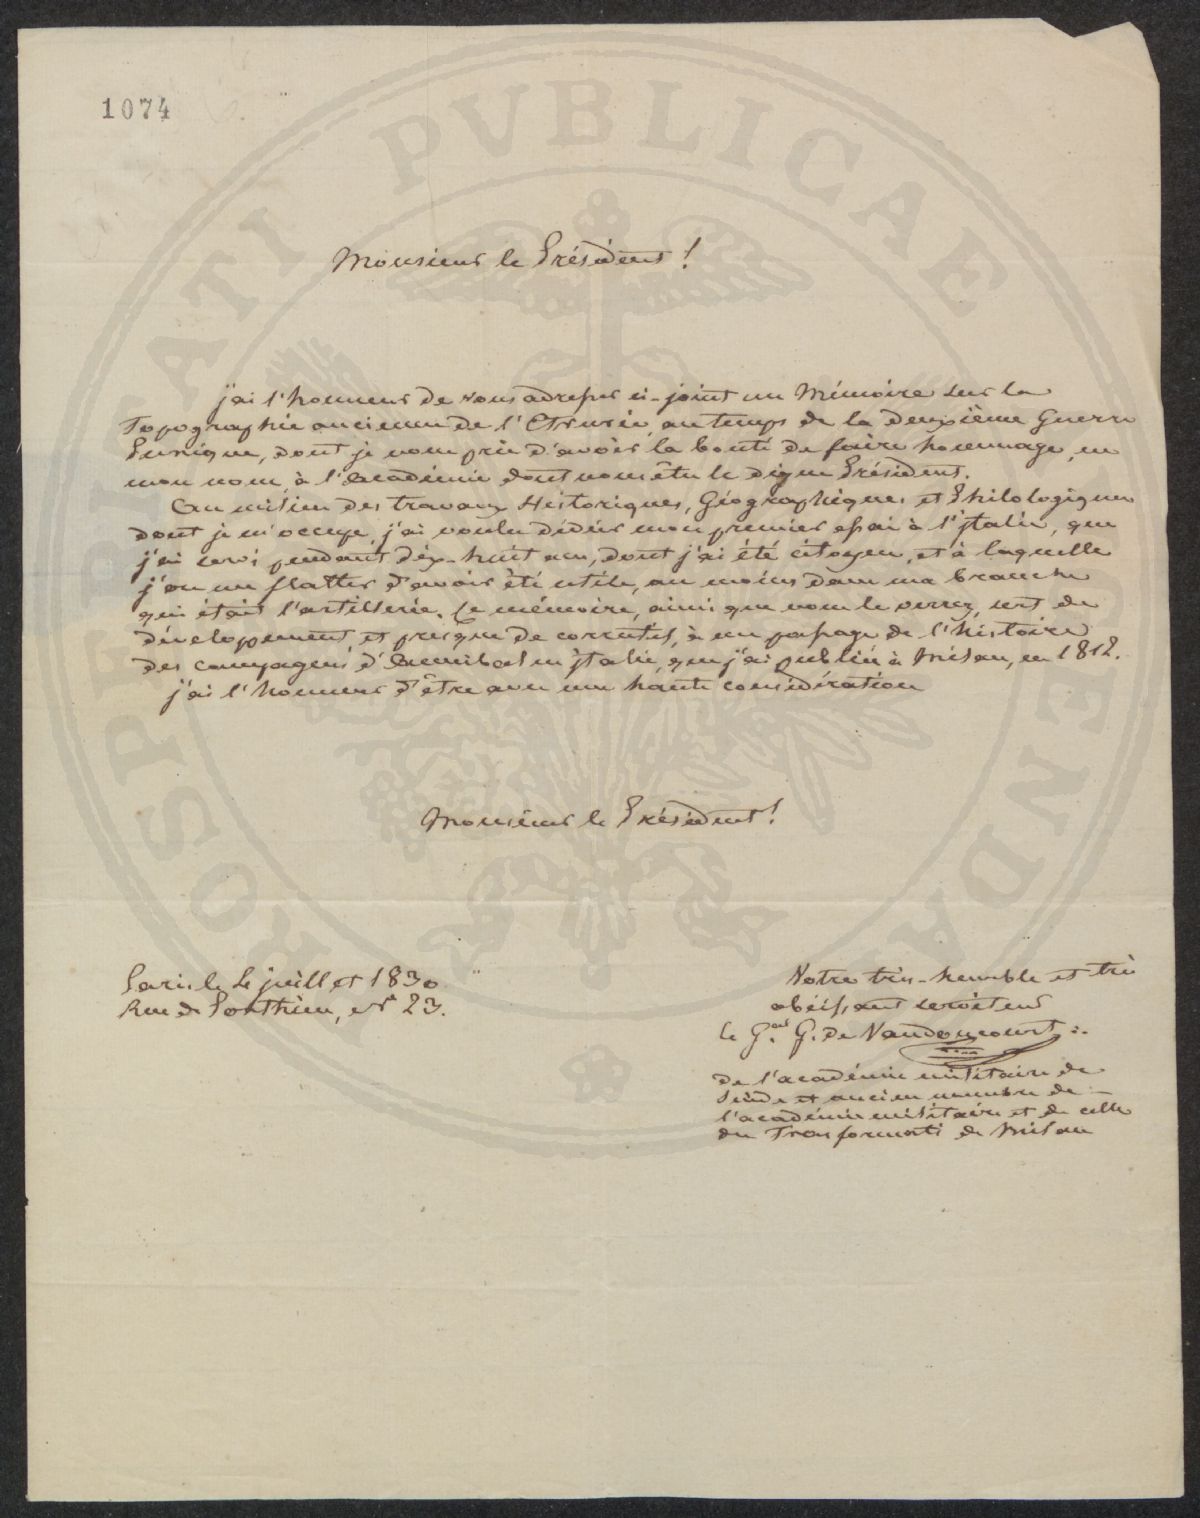 1074
PROSPERITATI PVBLICAE AVGENDAE
Monsieur le Président !
j'ai l'honneur de vous adresser ci-joint un Mémoire sur la
Topographie ancienne de l'Etrurie, au temps de la deuxième Guerre
Punique, dont je vous prie d'avoir la bonté de faire hommage, en
mon nom, à l'académie dont vous êtes le digne Président.
Au milieu des travaux Historiques, Géographiques et Philologiques
dont je m'occupe, j'ai voulu dédier mon premier essai à l'jtalie, que
j'ai servi pendant dix-huit ans, dont j'ai été citoyen, et à laquelle
j'ose me flatter d'avoir été utile, au moins dans ma branche
qui était l'artillerie. Ce mémoire, ainsi que vous le verrez, sert de
développement et presque de correctif, à un passage de l'histoire
des campagnes d'Annibal en jtalie, que j'ai publiée à Milan, en 1812.
j'ai l'honneur d'être avec une haute considération
Monsieur le Président !
Paris le 4 juillet 1830
Rue de Ponthieu, N° 23.
Votre très-humble et très
obéissant serviteur
le Gal G. de Vaudoncourt
de l'académie militaire de
Suède et ancien membre de
l'académie militaire et de celle
des Trasformati de Milan